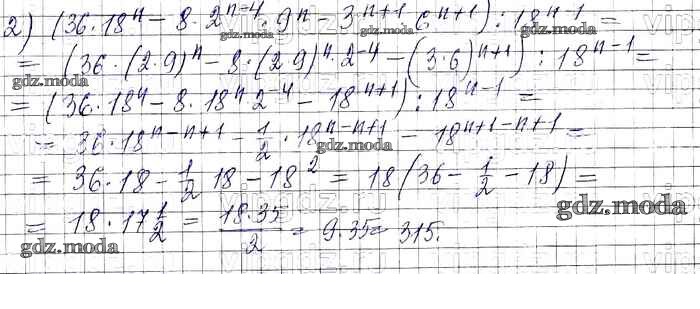 2) (36·18ⁿ − 8·2ⁿ⁻⁴·9ⁿ − 3ⁿ⁺¹·6ⁿ⁺¹) : 18ⁿ⁻¹ =
= (36·(2·9)ⁿ − 8·(2·9)ⁿ·2⁻⁴ − (3·6)ⁿ⁺¹) : 18ⁿ⁻¹ =
= (36·18ⁿ − 8·18ⁿ·2⁻⁴ − 18ⁿ⁺¹) : 18ⁿ⁻¹ =
= 36·18ⁿ⁻ⁿ⁺¹ − 1/2 · 18ⁿ⁻ⁿ⁺¹ − 18ⁿ⁺¹⁻ⁿ⁺¹ =
= 36·18 − 1/2 18 − 18² = 18(36 − 1/2 − 18) =
= 18·17 1/2 = 18·35/2 = 9·35 = 315.
gdz.moda
gdz.moda
gdz.moda
gdz.moda
gdz.moda
gdz.moda
gdz.moda